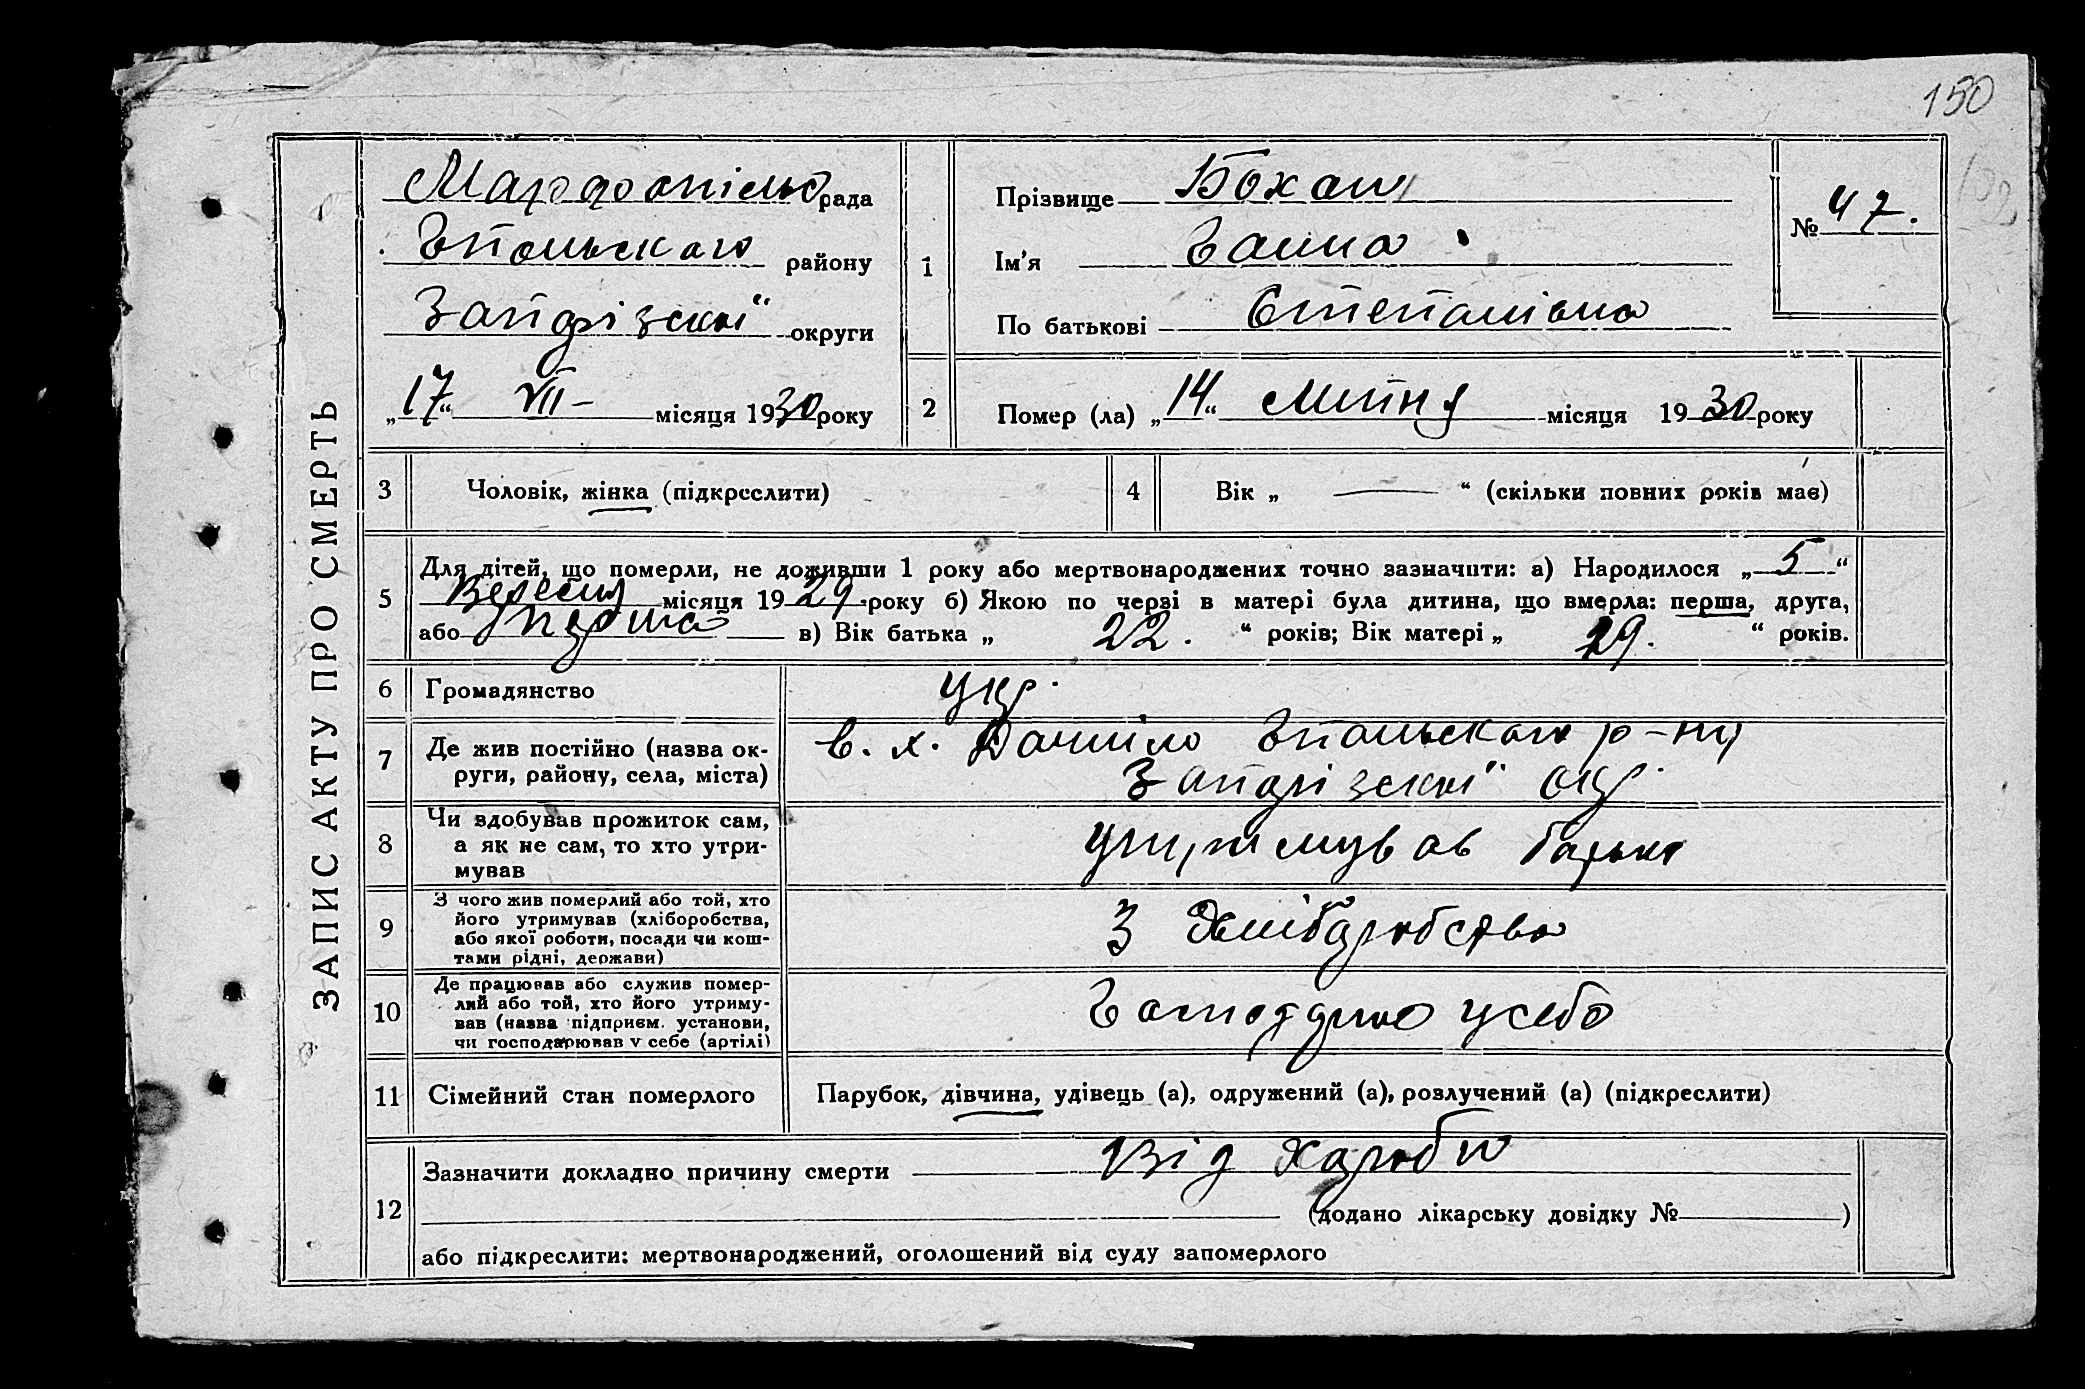 150
ЗАПИС АКТУ ПРО СМЕРТЬ
рада
Гпольского району
Запорізскої округи
„17“ VII– місяця 1930 року
1
Прізвище Бохан
Ім'я Ганна
По батькові Степанівна
№ 47.
2 Помер (ла) „14“ Липня місяця 1930 року
3 Чоловік, жінка (підкреслити)
4 Вік „ — “ (скільки повних років має)
5 Для дітей, що померли, не доживши 1 року або мертвонароджених точно зазначити: а) Народилося „5“
Вересня місяця 1929 року б) Якою по черзі в матері була дитина, що вмерла: перша, друга,
або перша в) Вік батька „ 22. “ років; Вік матері „ 29. “ років.
6 Громадянство укр.
7 Де жив постійно (назва ок-
руги, району, села, міста)
в. х. Гпольского р-ну
Запорізскої окр.
8 Чи здобував прожиток сам,
а як не сам, то хто утри-
мував
утримував батько
9 З чого жив померлий або той, хто
його утримував (хліборобства,
або якої роботи, посади чи кош-
тами рідні, держави)
З хліборобства
10 Де працював або служив помер-
лий або той, хто його утриму-
вав (назва підприєм. установи,
чи господарював у себе (артілі)
усебе
11 Сімейний стан померлого
Парубок, дівчина, удівець (а), одружений (а), розлучений (а) (підкреслити)
12 Зазначити докладно причину смерти Від хороби
(додано лікарську довідку № )
або підкреслити: мертвонароджений, оголошений від суду запомерлого